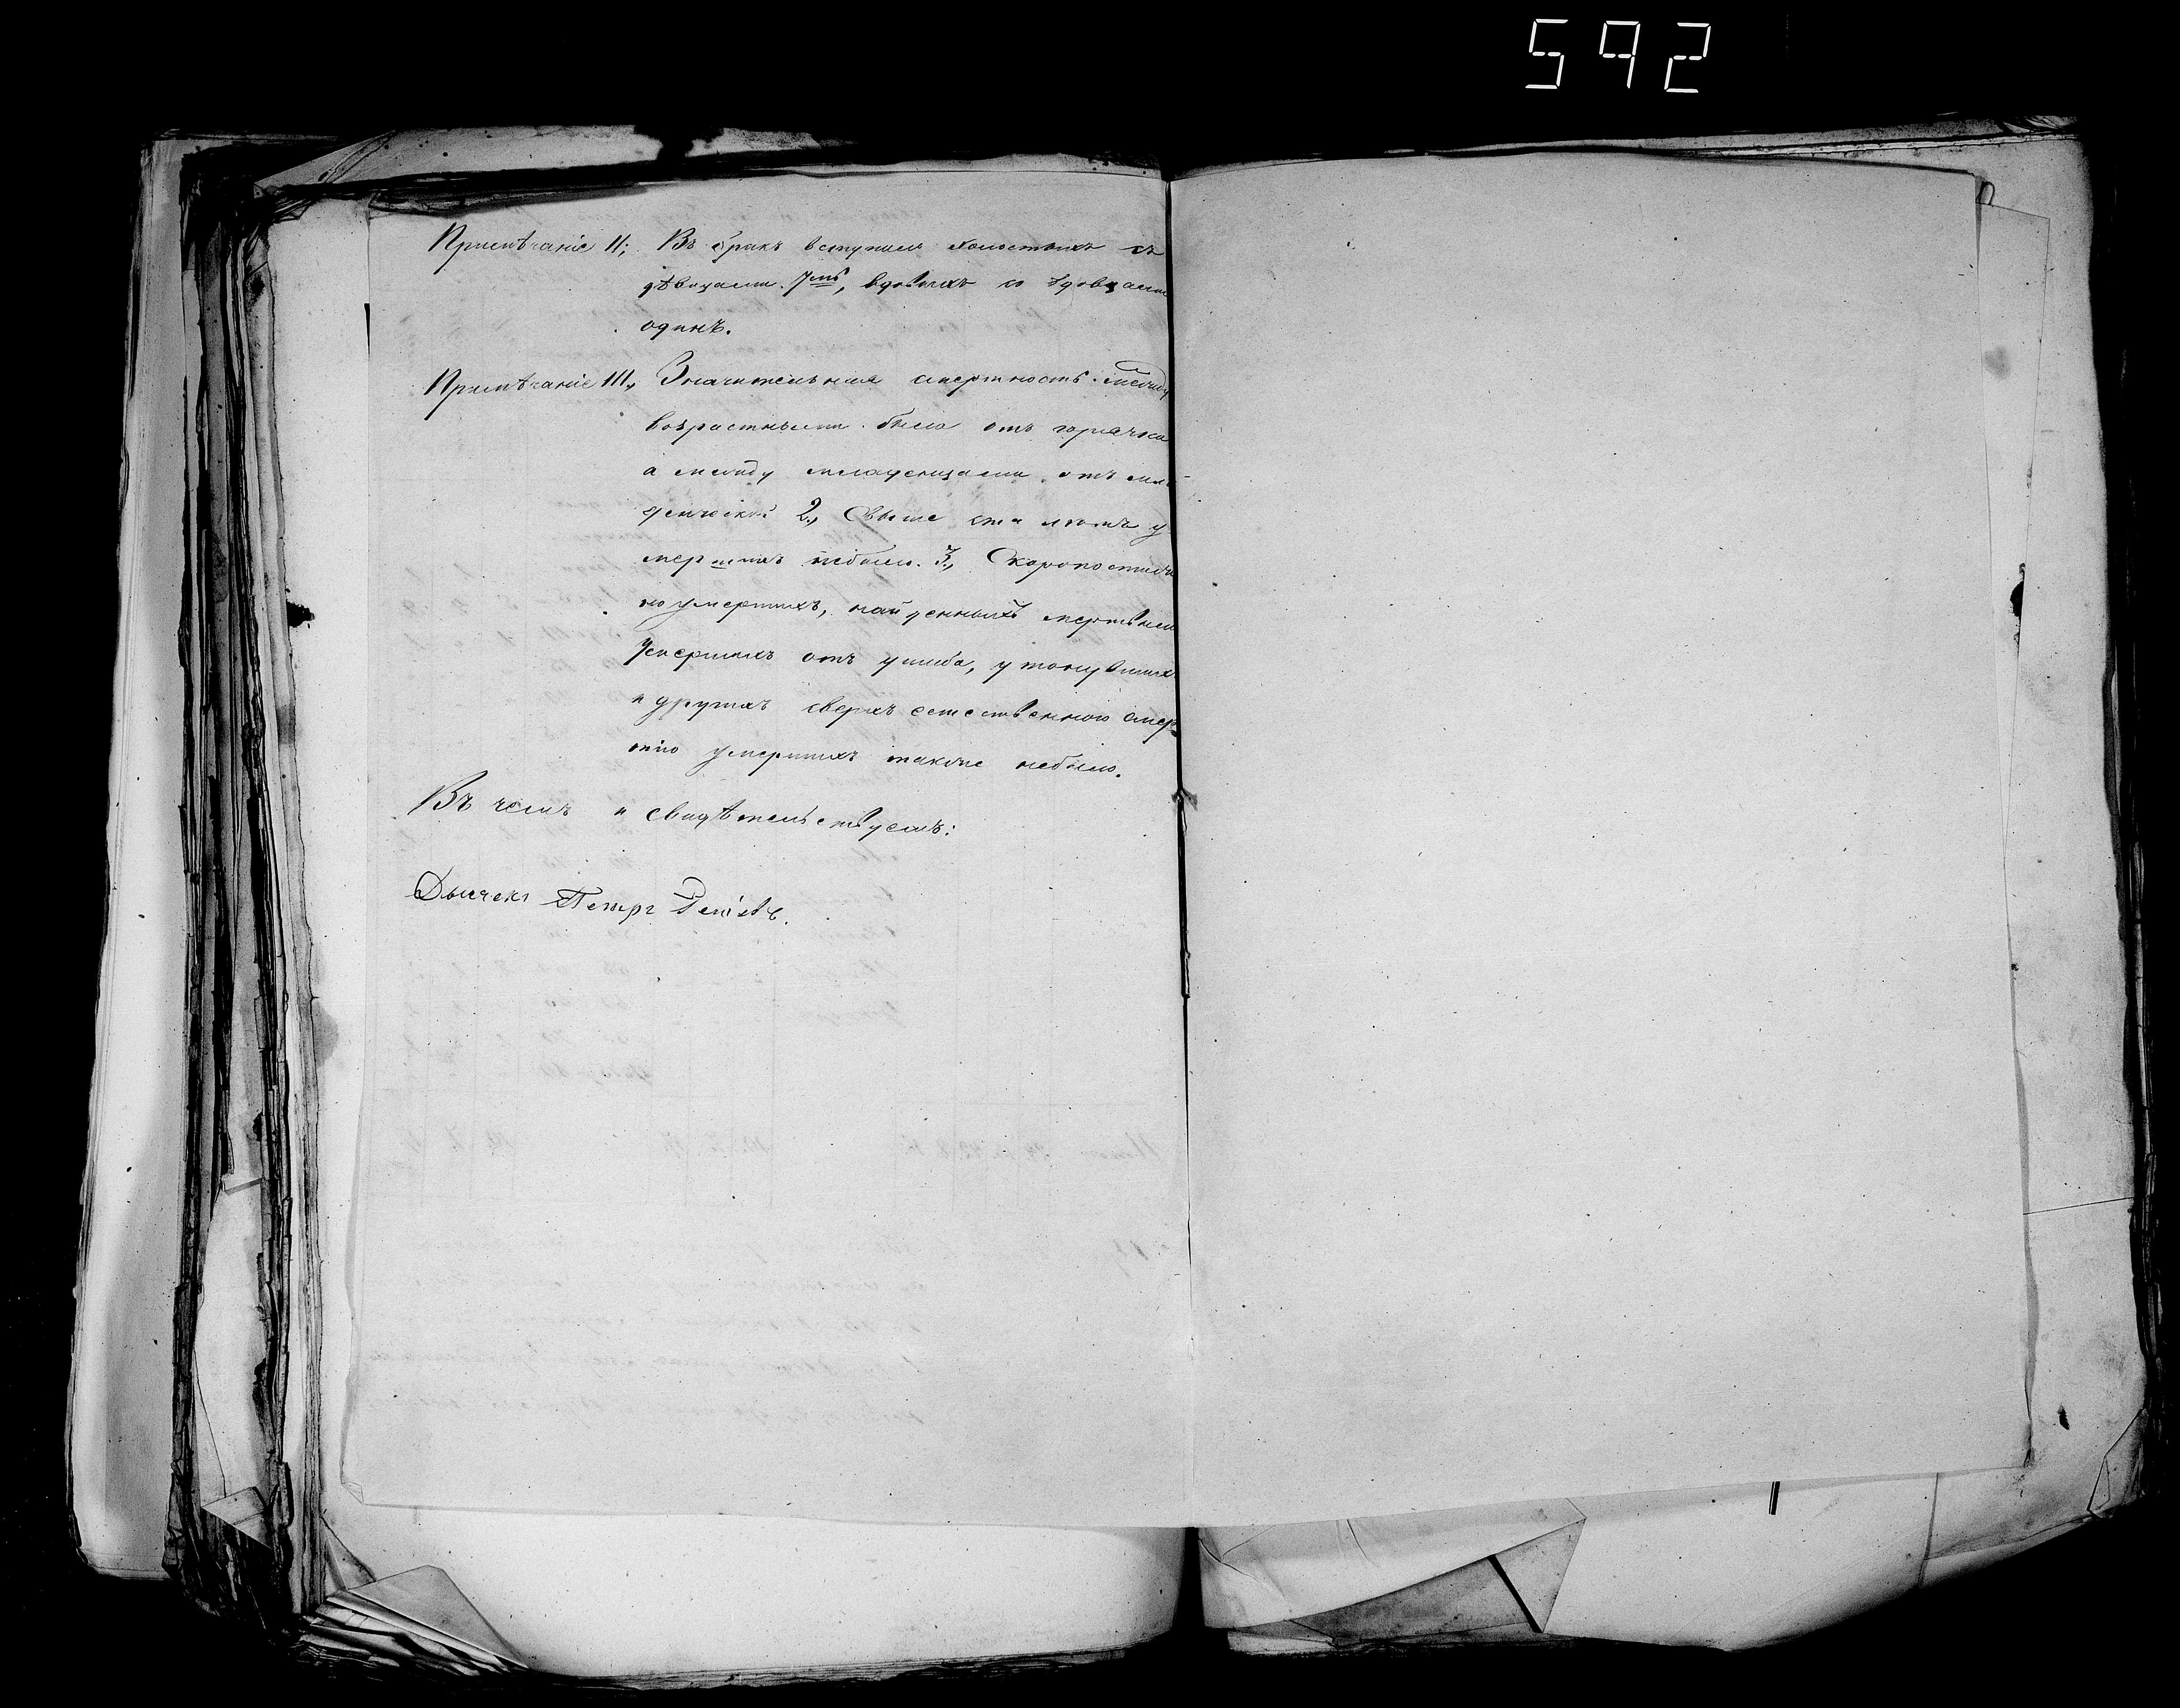 592
Примѣчаніе II; Въ бракъ вступило холостыхъ съ
дѣвицами 7мь, вдовыхъ со вдовцами
одинъ.
Примѣчаніе III., Значительная смертность между
возрастными была отъ горячки
а между младенцами отъ мла
денческой 2., Свыше ста лѣтъ у
мершихъ небыло. 3., Скоропостиж
но умершихъ, найденныхъ мертвыми
умершихъ отъ ушиба, утонувшихъ
и другихъ сверхъестественною смер
тію умершихъ также небыло.
Въ чемъ и свидѣтельствуемъ:
Дьячекъ Петръ